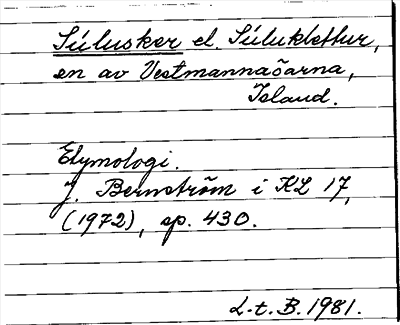 Súlusker el. Súluklettur,
en av Vestmannaöarna,
Island.
Etymologi.
J. Bernström i KL 17,
(1972), sp. 430.
L.t.B. 1981.